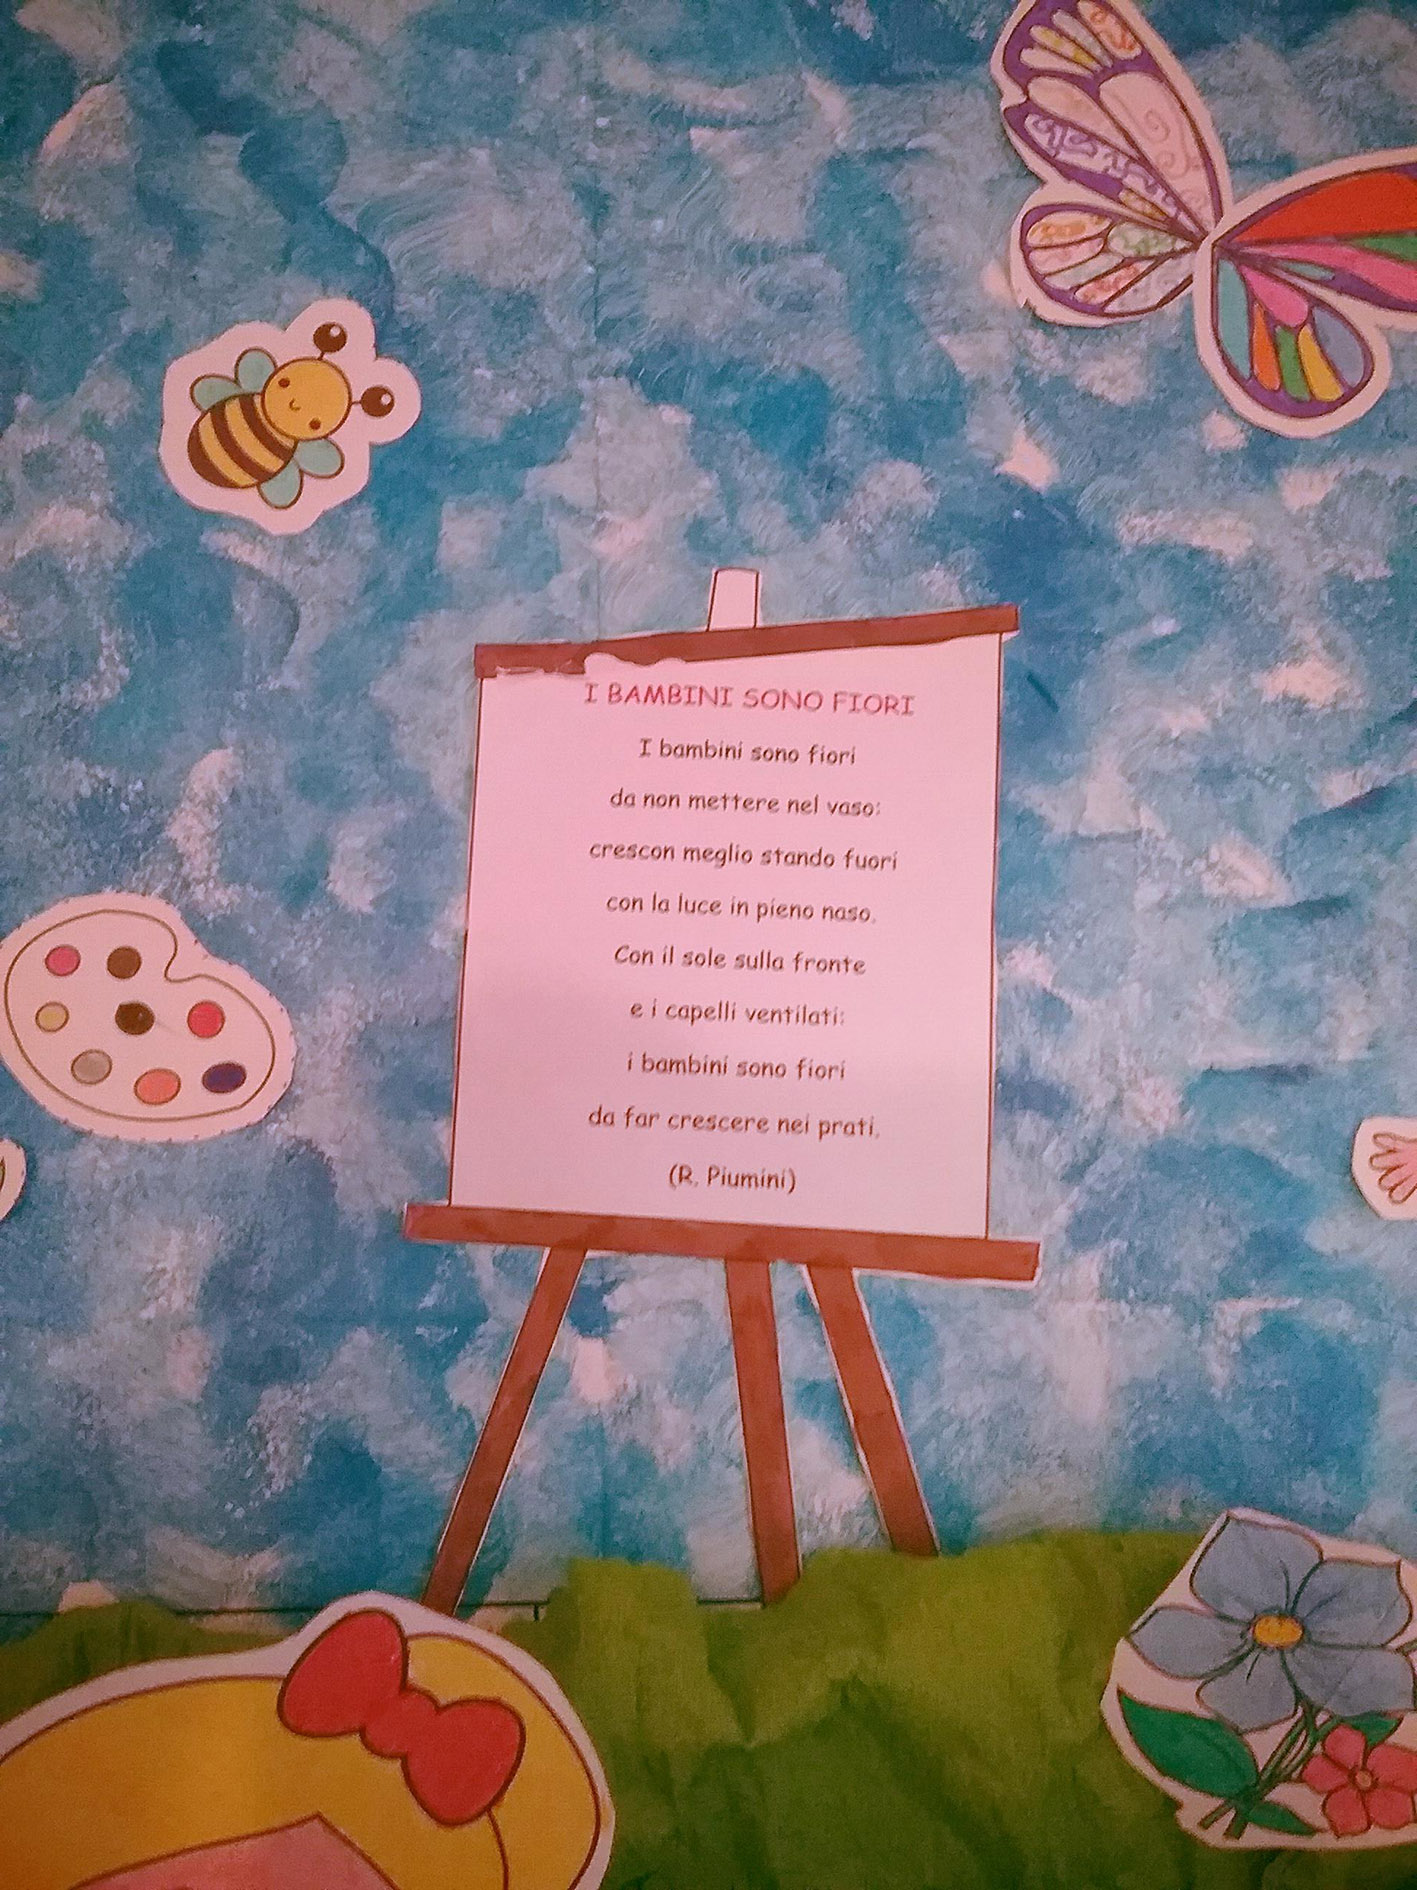 I BAMBINI SONO FIORI
I bambini sono fiori
da non mettere nel vaso:
crescon meglio stando fuori
con la luce in pieno naso.
Con il sole sulla fronte
e i capelli ventilati:
i bambini sono fiori
da far crescere nei prati.
(R. Piumini)